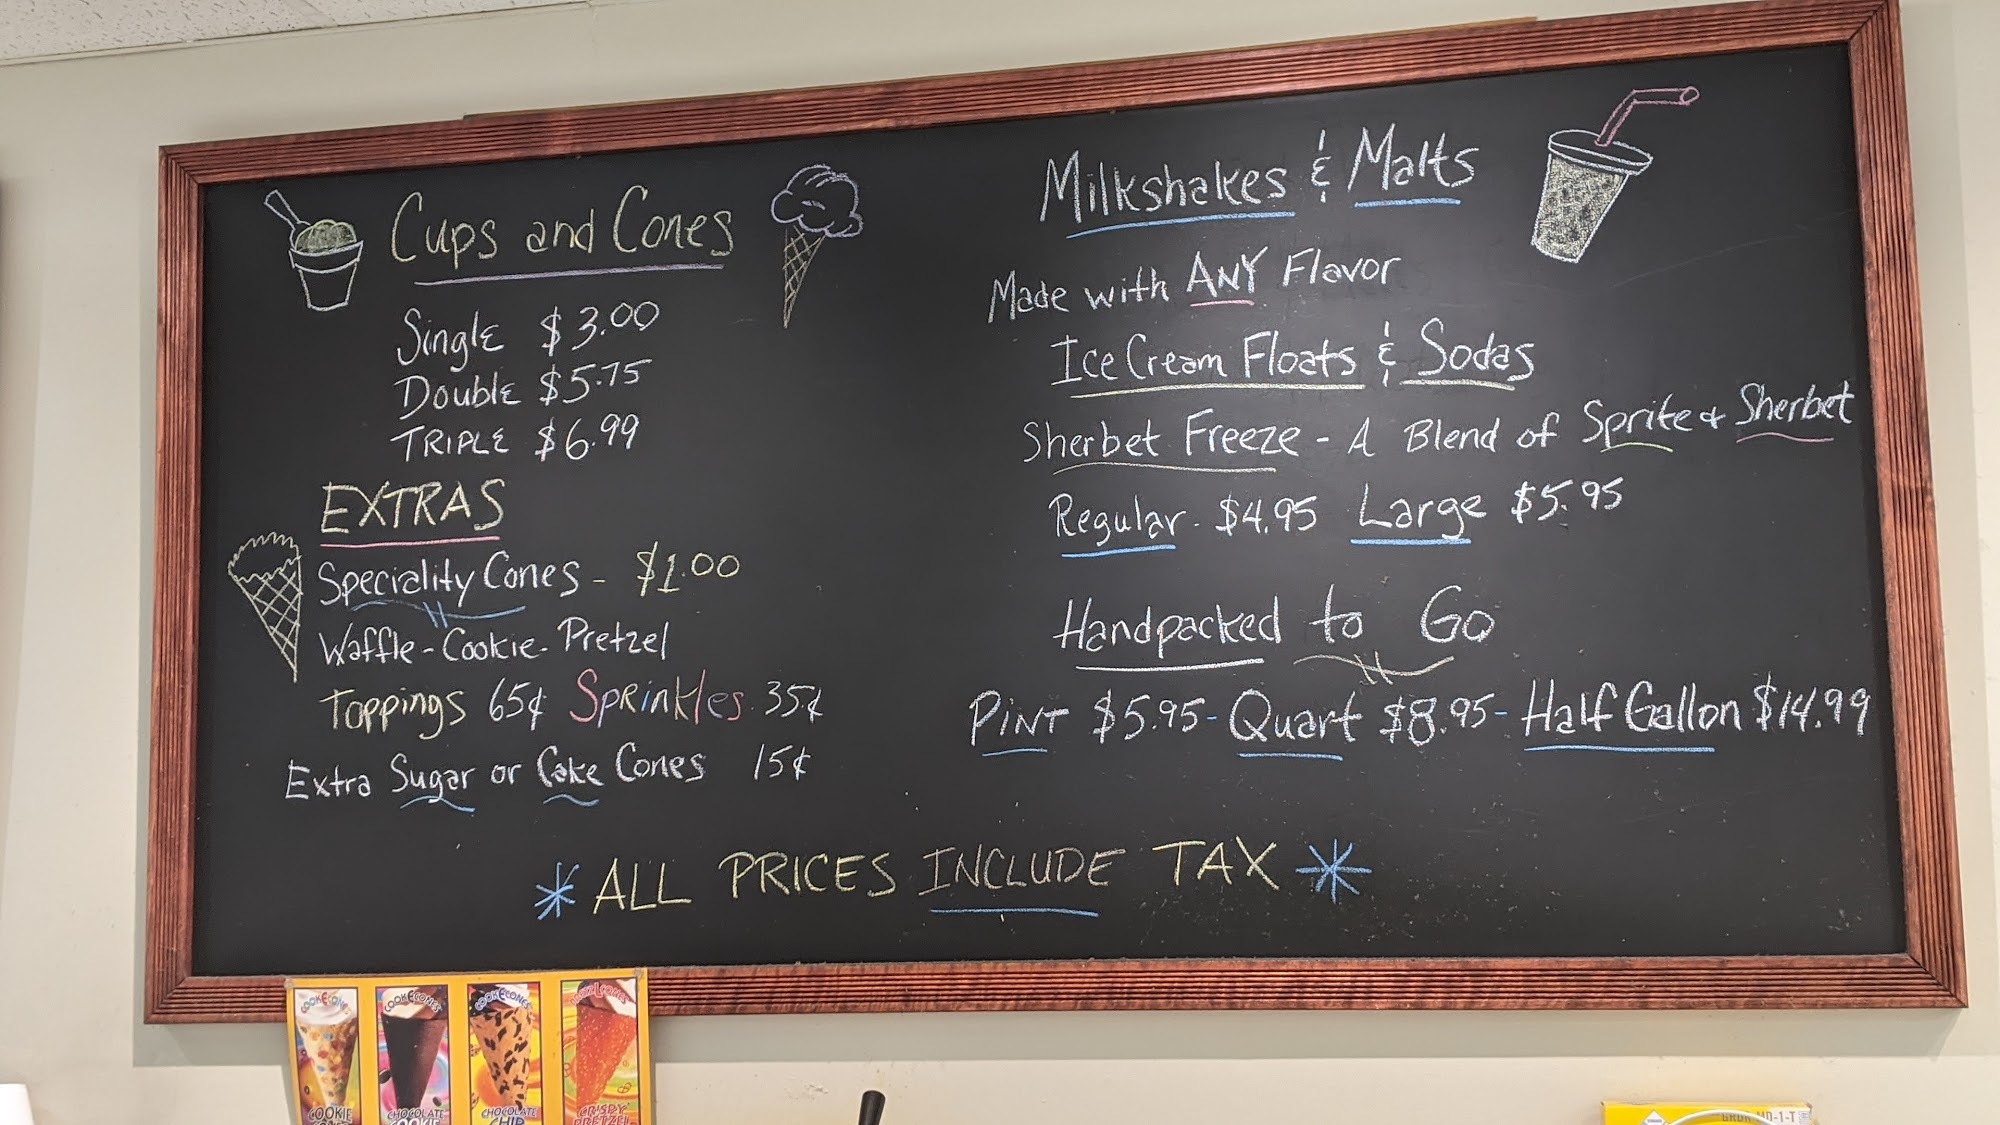 Cups and Cones
Single $3.00
Double $5.75
TRIPLE $6.99
EXTRAS
Speciality Cones - $1.00
Waffle - Cookie - Pretzel
Toppings 65¢ Sprinkles 35¢
Extra Sugar or Cake Cones 15¢
Milkshakes & Malts
Made with ANY Flavor
Ice Cream Floats & Sodas
Sherbet Freeze - A Blend of Sprite & Sherbet
Regular - $4.95 Large $5.95
Handpacked to Go
Pint $5.95 - Quart $8.95 - Half Gallon $14.99
* ALL PRICES INCLUDE TAX *
COOKECONES
COOKIE
COOKECONES
CHOCOLATE
COOKIE
COOKECONES
CHOCOLATE
CHIP
CRISPY
PRETZEL